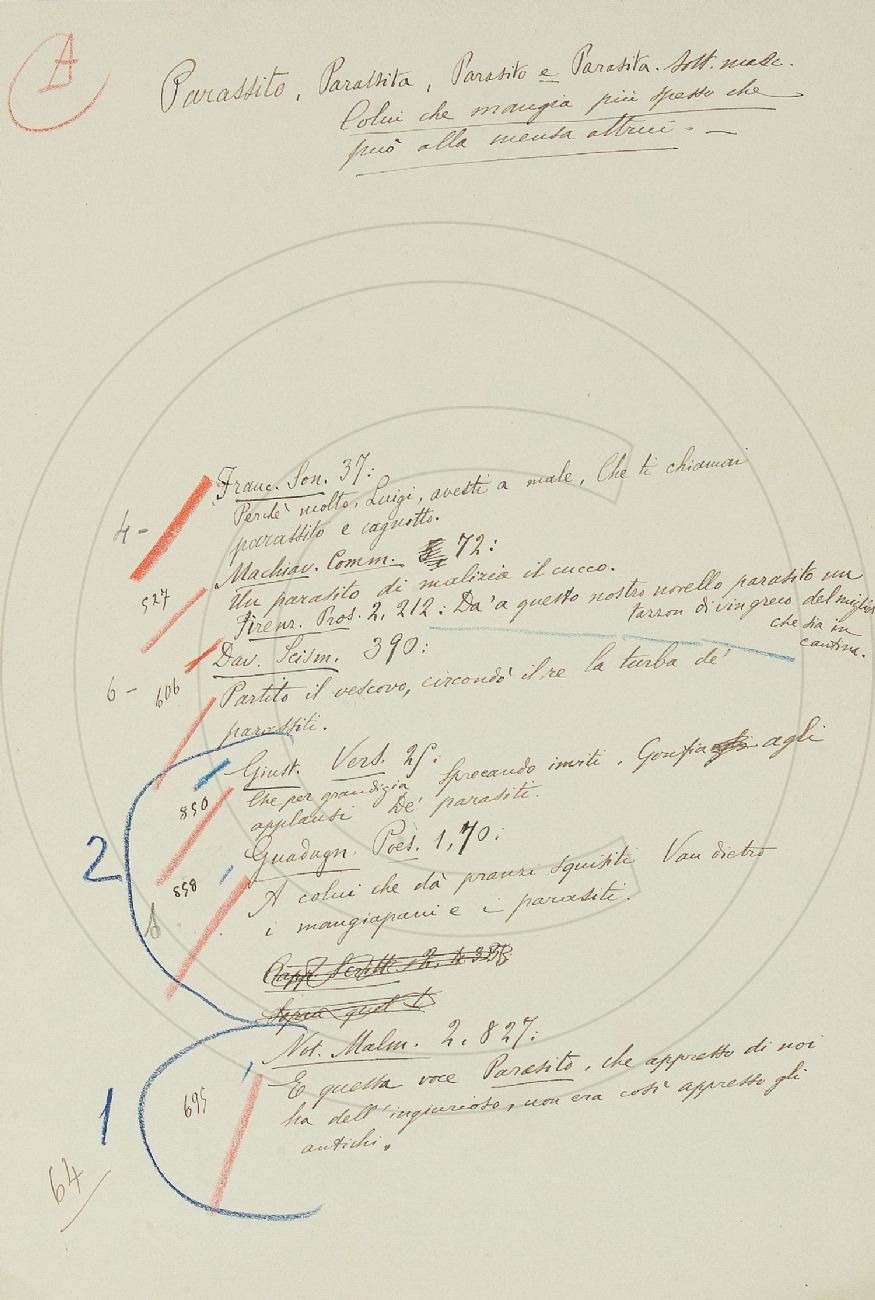 A
Parassito, Parassita, Parasito e Parasita. Sost. masc.
Colui che mangia più spesso che
può alla mensa altrui. –
4 –
Franc. Son. 37:
Perchè molto, Luigi, avesti a male, Che ti chiamai
parassito e cagnotto.
527
Machiav. Comm. 72:
Un parasito di malizia il cucco.
Firenz. Pros. 2, 212: Da' a questo nostro novello parasito un
tarzon di vin greco del miglior
che sia in
cantina.
6 –
606
Dav. Scism. 390:
Partito il vescovo, circondò il re la turba de'
parassiti.
2
850
Giust. Vers. 25:
Che per grandigia Sprecando inviti, Gonfia agli
applausi De' parasiti.
858
Guadagn. Poes. 1, 70:
A colui che dà pranzi squisiti Van dietro
i mangiapani e i parasiti.
Capp. Scritt.
1
695
Not. Malm. 2. 827:
E questa voce Parasito, che appresso di noi
ha dell'ingiurioso, non era così appresso gli
antichi.
64